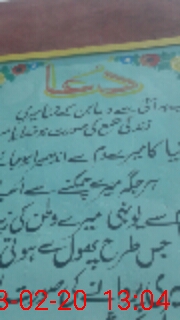 دعا
لب پہ آتی ہے دعا بن کے تمنا میری
زندگی شمع کی صورت ہو خدایا میری
دنیا کا میرے دم سے اندھیرا ہو جائے
ہر جگہ میرے چمکنے سے اُجا
دم سے یونہی میرے وطن کی ز
جس طرح پھول سے ہوتی
3-02-20 13:04